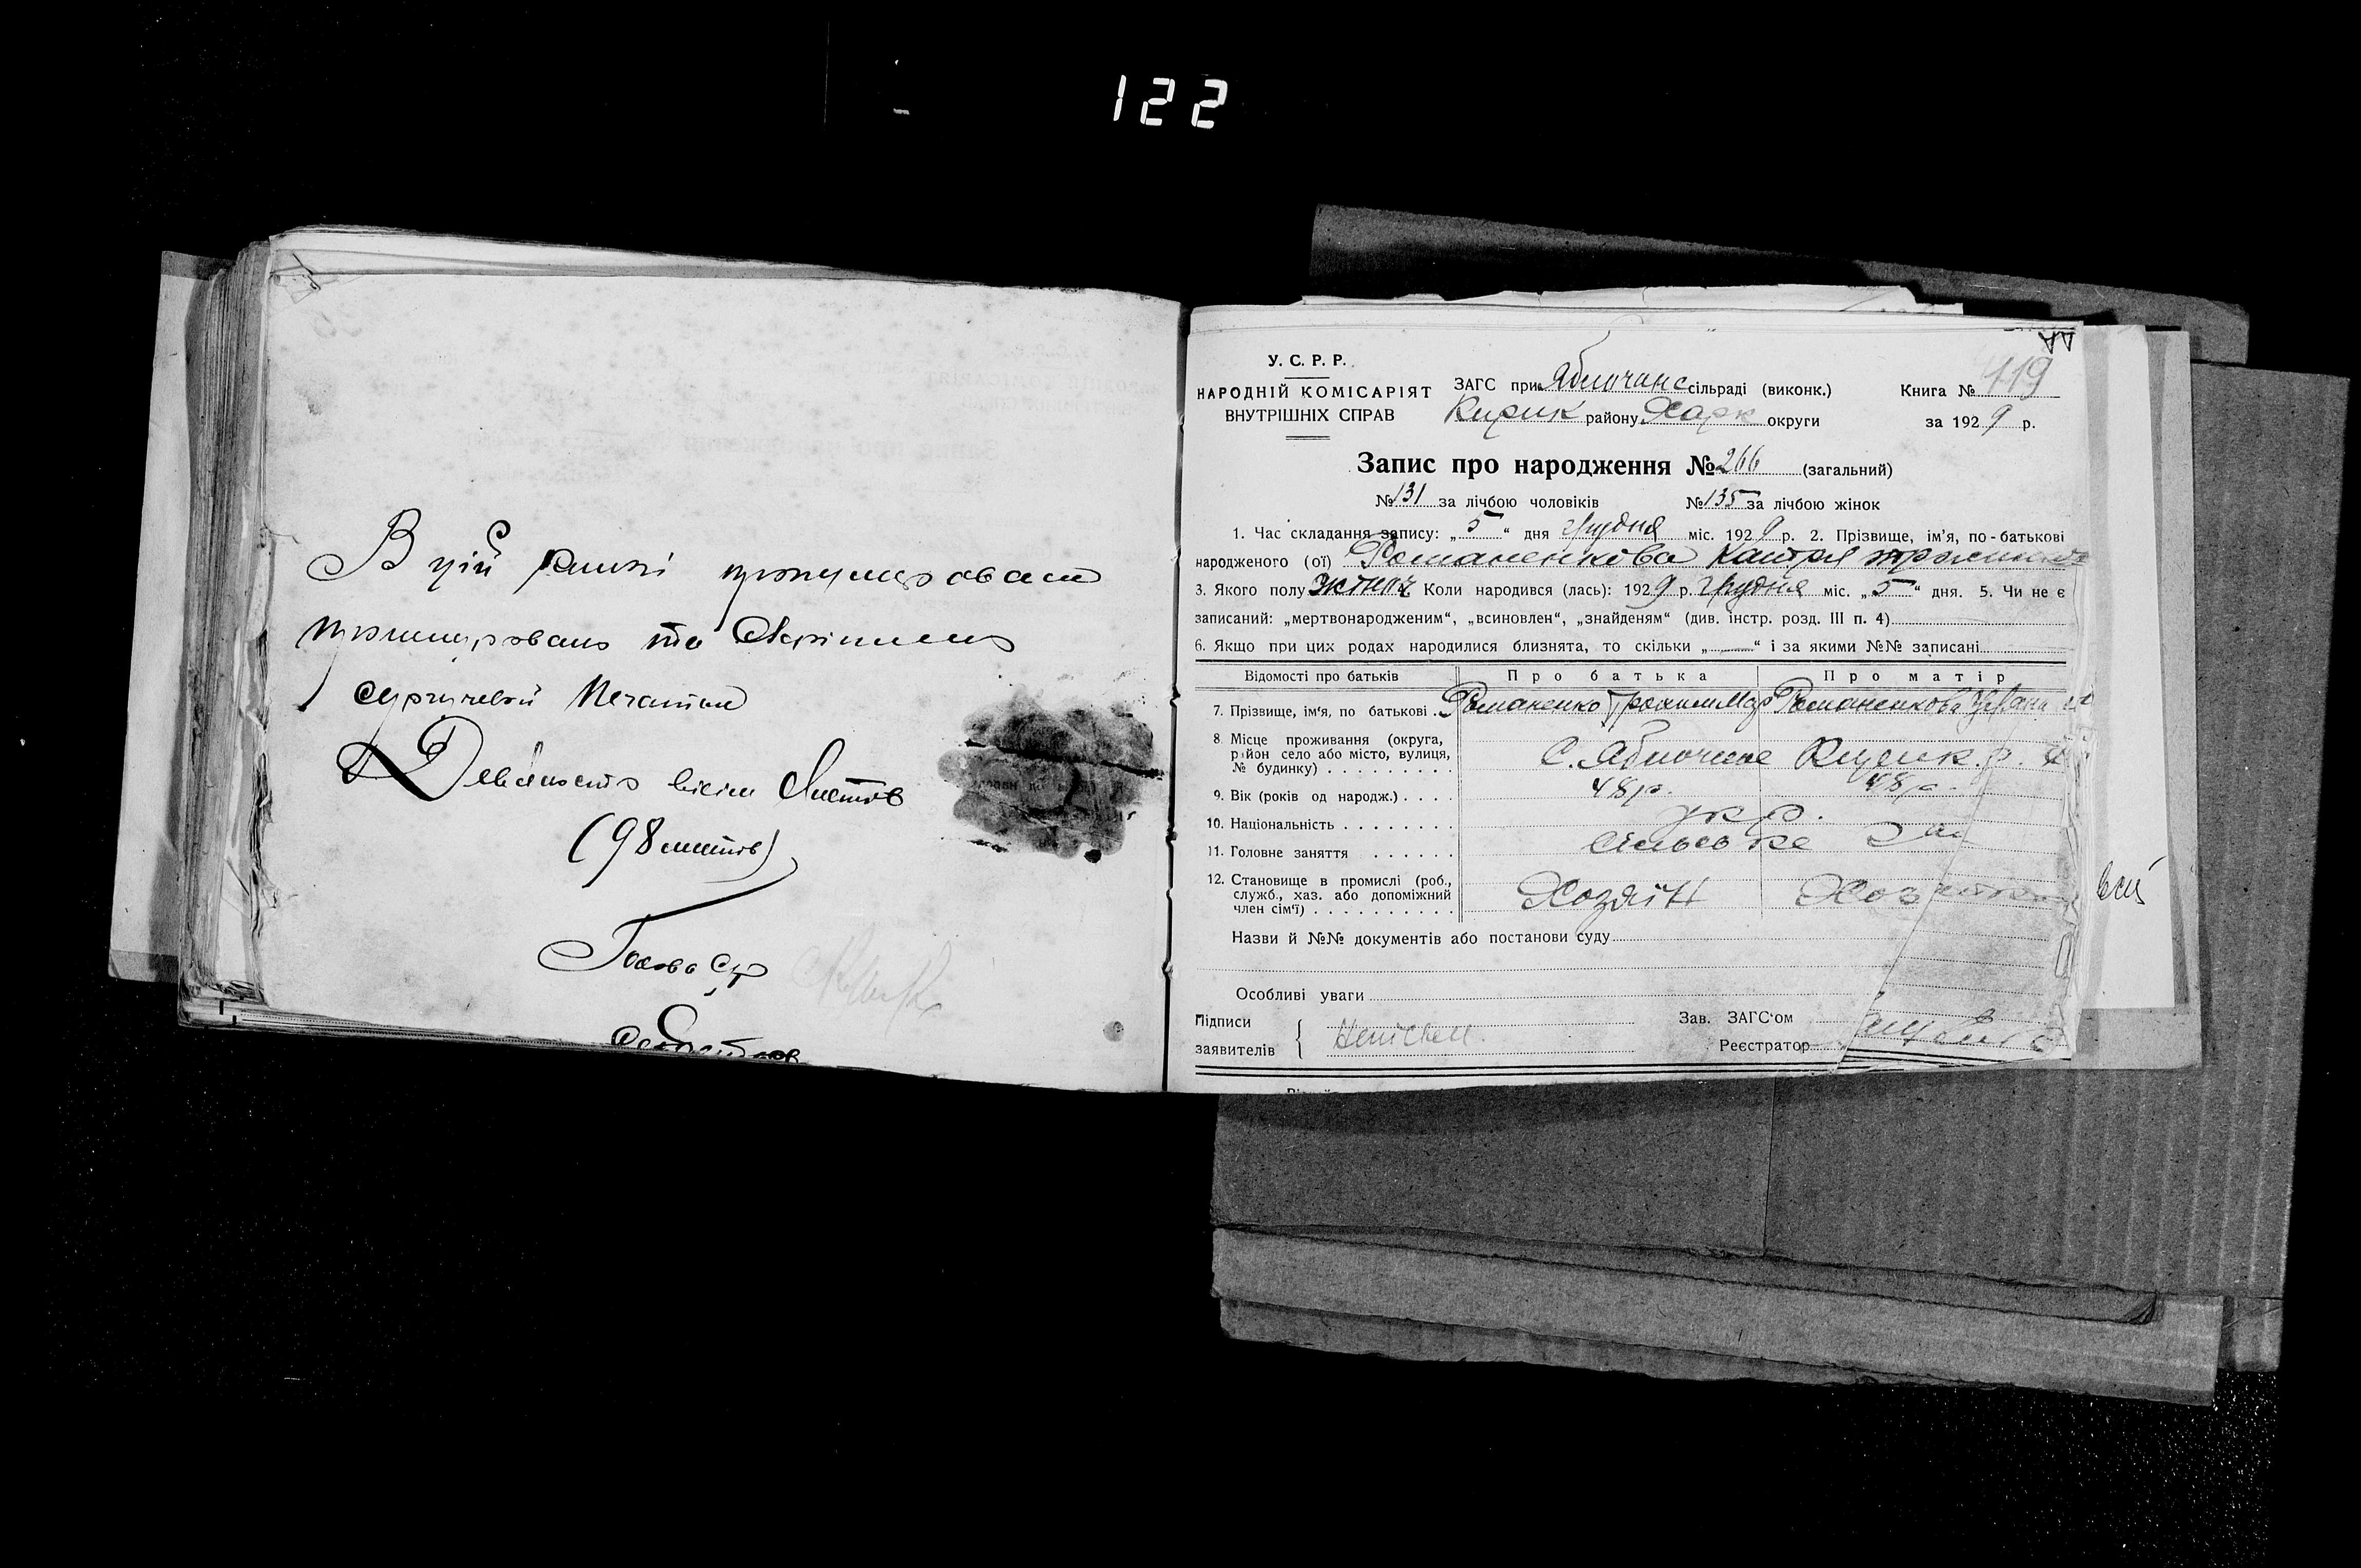 122
В цій книзі пронумеровано
прошнуровано та скріплено
сургучевой печаттю
Девяносто вісім листів
(98 листів)
Голова С/р
Секретар
У. С. Р. Р.
НАРОДНІЙ КОМІСАРІЯТ
ВНУТРІШНІХ СПРАВ
ЗАГС при Яблочанс сільраді (виконк.)
район у Харк округи
Книга №
119
за 1929 р.
Запис про народження № 266 (загальний)
№ 131 за лічбою чоловіків № 135 за лічбою жінок
1. Час складання запису: „5“ дня грудня міс. 1929 р. 2. Прізвище, ім'я, по-батькові
народженого (ої) Романенкова
3. Якого полу жіноч Коли народився (лась): 1929 р. грудня міс. „5“ дня. 5. Чи не є
записаний: „мертвонародженим“, „всиновлен“, „знайденям“ (див. інстр. розд. III п. 4)
6. Якщо при цих родах народилися близнята, то скільки „—“ і за якими №№ записані
Відомості про батьків Про батька Про матір
7. Прізвище, ім'я, по батькові Романенко Романенкова
8. Місце проживання (округа,
район село або місто, вулиця,
№ будинку) С. Яблочное
9. Вік (років од народж.) 48 р. 48 р.
10. Національність укр.
11. Головне заняття сільське
12. Становище в промислі (роб.,
служб., хаз. або допоміжний
член сім'ї) Хозяїн
Назви й №№ документів або постанови суду
Особливі уваги
Підписи
заявителів
Зав. ЗАГС'ом
Реєстратор